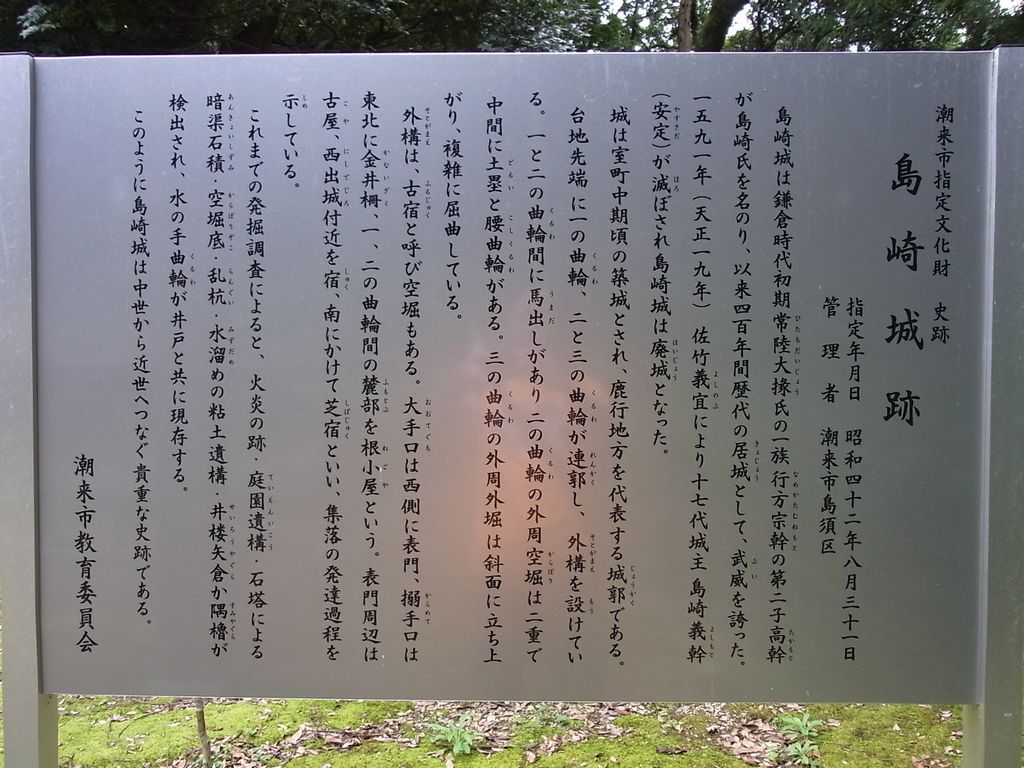 潮来市指定文化財　史跡
島崎城跡
指定年月日　昭和四十二年八月三十一日
管理者　潮来市島須区
島崎城は鎌倉時代初期常陸大掾氏の一族行方宗幹の第二子高幹
が島崎氏を名のり、以来四百年間歴代の居城として、武威を誇った。
一五九一年（天正一九年）佐竹義宣により十七代城主 島崎義幹
（安定）が滅ぼされ島崎城は廃城となった。
城は室町中期頃の築城とされ、鹿行地方を代表する城郭である。
台地先端に一の曲輪、二と三の曲輪が連郭し、外構を設けてい
る。一と二の曲輪間に馬出しがあり二の曲輪の外周空堀は二重で
中間に土塁と腰曲輪がある。三の曲輪の外周外堀は斜面に立ち上
がり、複雑に屈曲している。
外構は、古宿と呼び空堀もある。大手口は西側に表門、搦手口は
東北に金井柵、一、二の曲輪間の麓部を根小屋という。表門周辺は
古屋、西出城付近を宿、南にかけて芝宿といい、集落の発達過程を
示している。
これまでの発掘調査によると、火炎の跡・庭園遺構・石塔による
暗渠石積・空堀底・乱杭・水溜めの粘土遺構・井楼矢倉か隅櫓が
検出され、水の手曲輪が井戸と共に現存する。
このように島崎城は中世から近世へつなぐ貴重な史跡である。
潮来市教育委員会